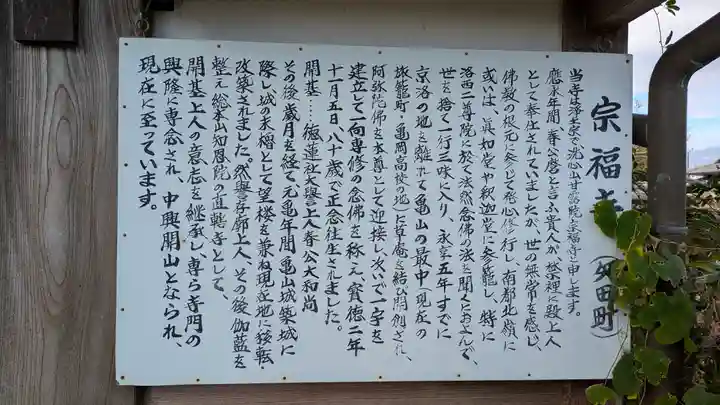 宗福寺(矢田町)
当寺は浄土宗で光松山甘露院宗福寺と申します。
應永年間、春公麿と言ふ貴人が、禁裡に殿上人
として奉仕されていましたが、世の無常を感じ、
佛教の根元に参じて発心修行し、南都北嶺に
或いは、真如堂や釈迦堂に参籠し、特に
洛西二尊院に於て法然念佛の法を聞くにおよんで、
世を捨て一行三昧に入り、永享五年すでに
京洛の地を離れて亀山の最中(現在の
旅籠町・亀岡高校の地)に草庵を結び開創され、
阿弥陀佛を本尊として迎接し次いで一宇を
建立して一向専修の念佛を称え宝徳二年
十一月五日、八十歳で正念往生されました。
開基…徳蓮社大誉上人春公大和尚
その後歳月を経て元亀年間亀山城築城に
際し、城の末櫓として望楼を兼ね現在地に移転・
改築されました。然誉存郭上人、その後伽藍を
整え総本山知恩院の直轄寺として、
開基上人の意志を継承し、専ら寺門の
興隆に専念され、中興開山となられ、
現在に至っています。